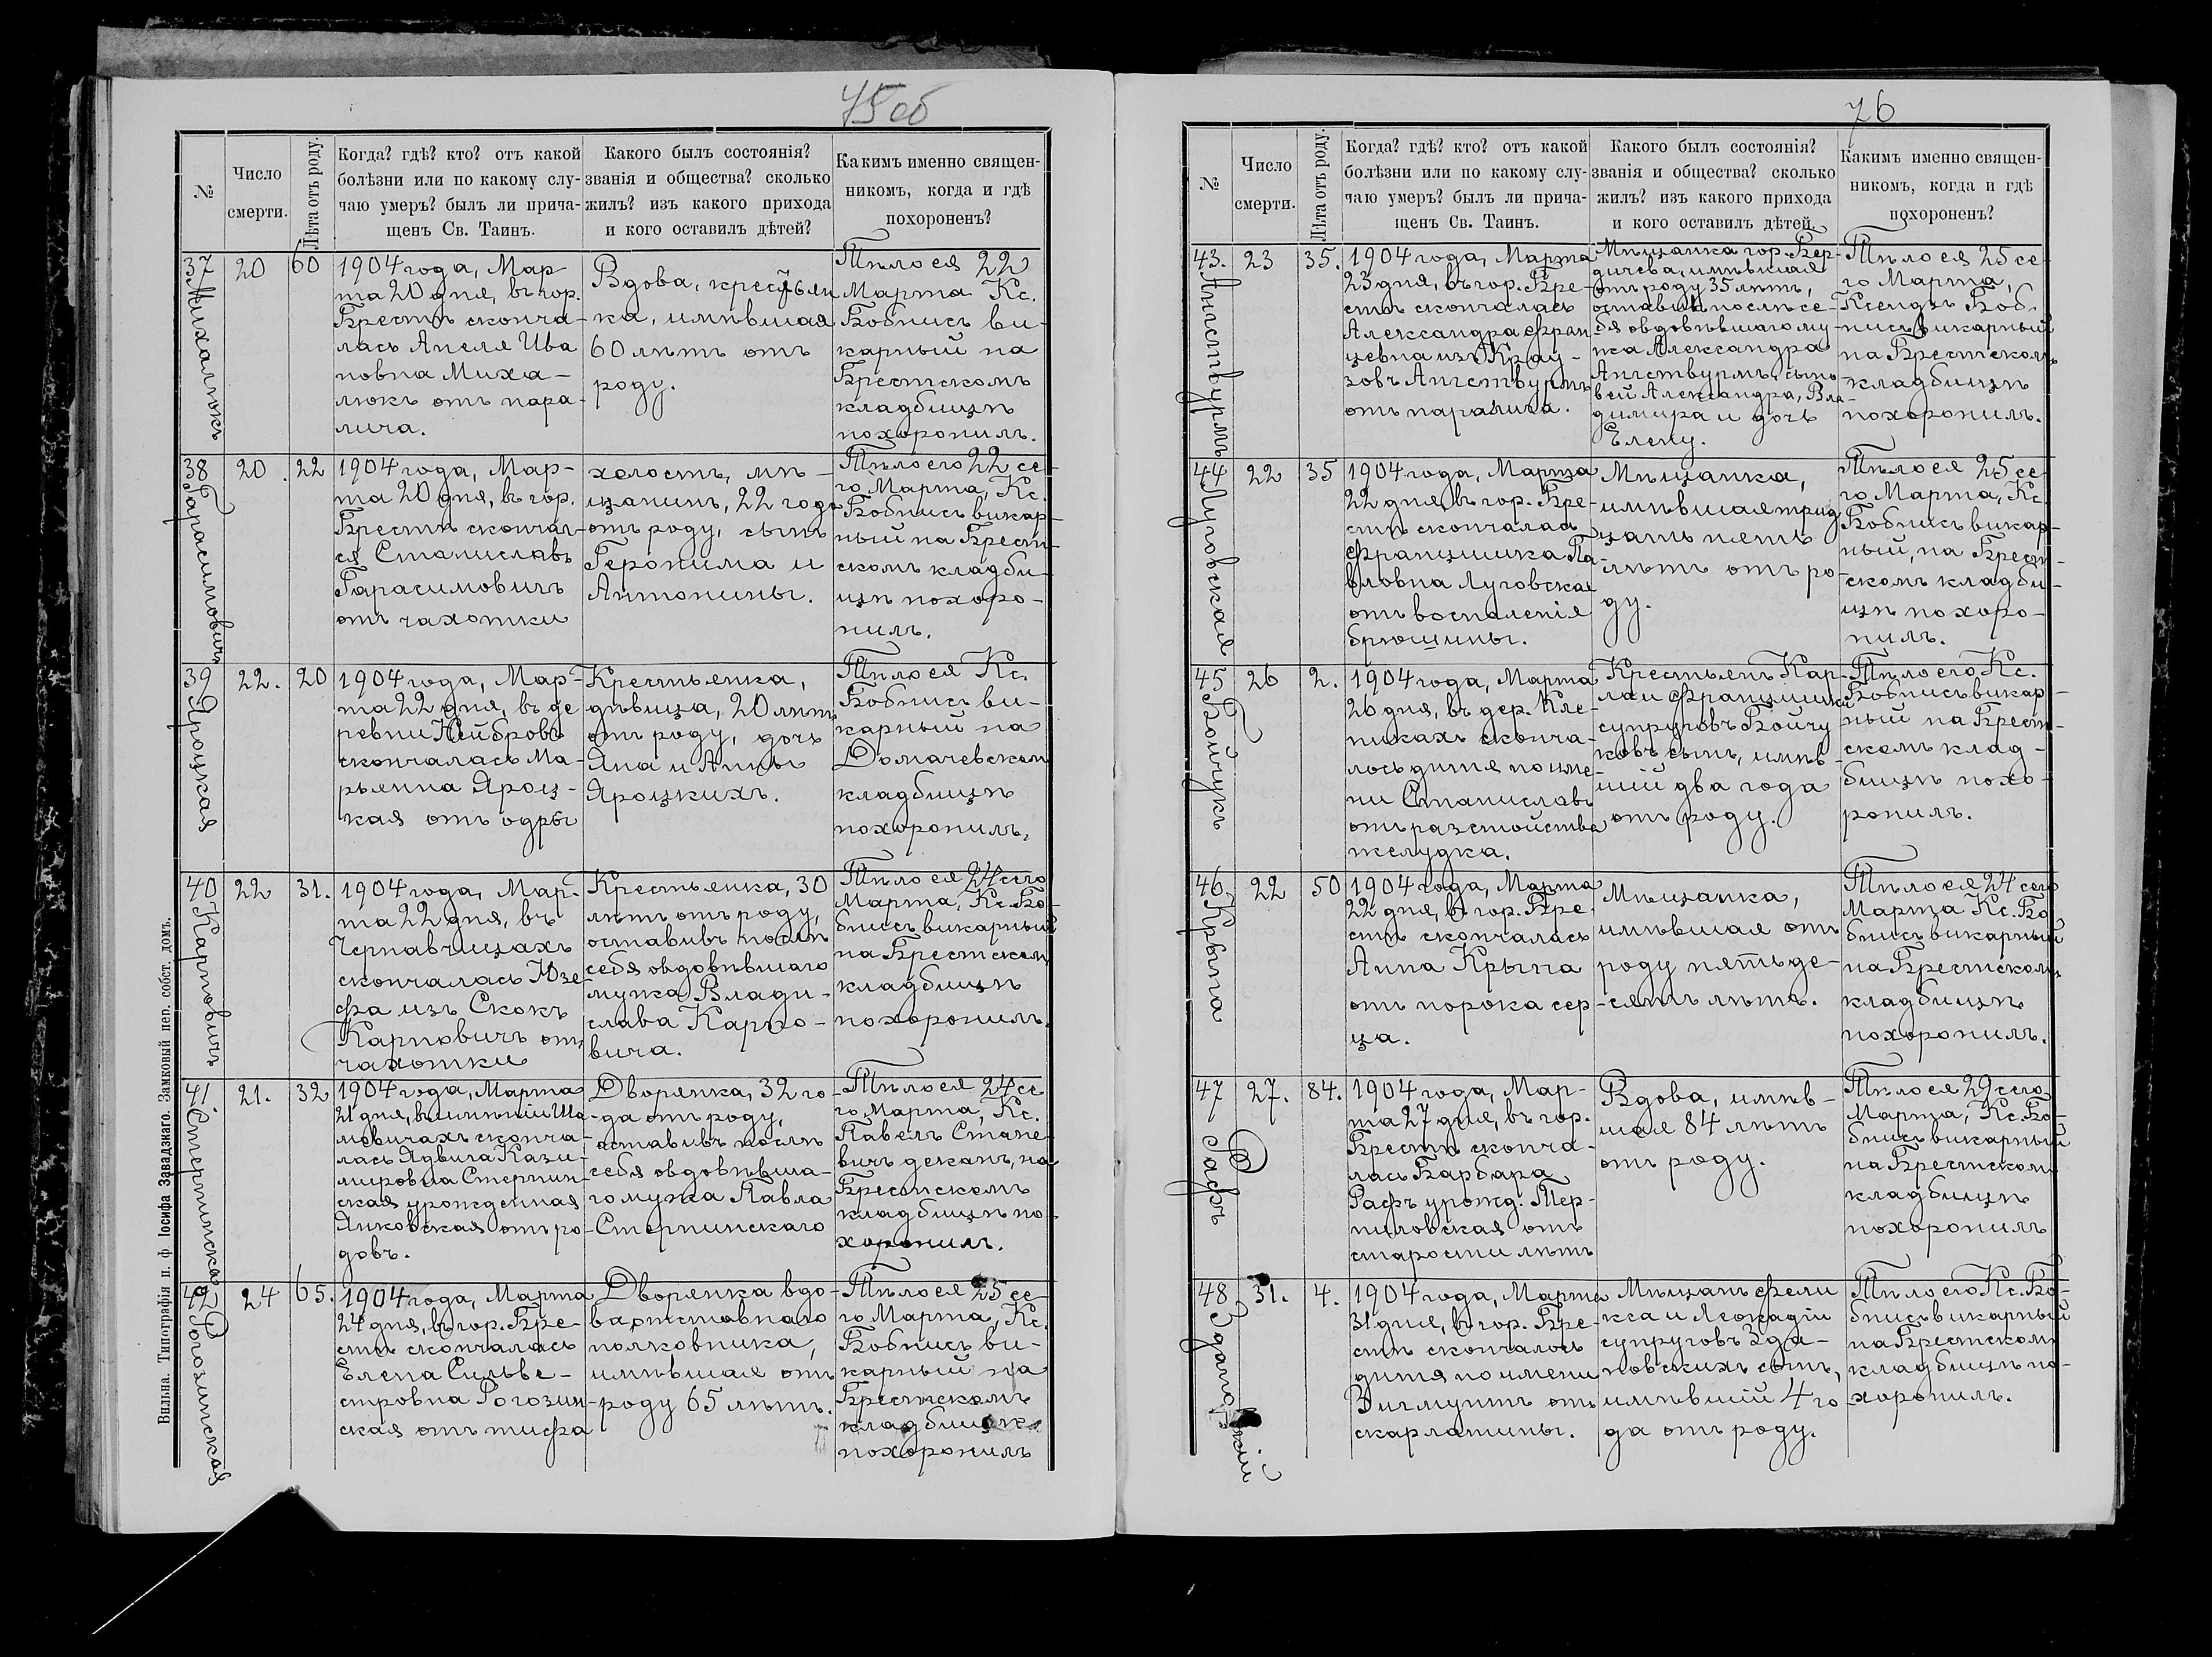 75 об
№
Число
смерти.
Лѣта отъ роду.
Когда? гдѣ? кто? отъ какой
болѣзни или по какому слу-
чаю умеръ? былъ ли прича-
щенъ Св. Таинъ.
Какого былъ состоянія?
званія и общества? сколько
жилъ? изъ какого прихода
и кого оставилъ дѣтей?
Какимъ именно священ-
никомъ, когда и гдѣ
похороненъ?
37
Михалюкъ
20
60
1904 года, Мар
та 20 дня, въ гор.
Брестѣ сконча-
лась Анеля Ива
новна Миха-
люкъ отъ пара-
лича.
Вдова, крестьян
ка, имѣвшая
60 лѣтъ отъ
роду.
Тѣло ея 22
Марта Кс.
Бобнисъ ви-
карный на
Брестскомъ
кладбищѣ
похоронилъ.
38
Гарасимовичъ
20.
22
1904 года, Мар-
та 20 дня, въ гор.
Брестѣ скончал-
ся Станиславъ
Гарасимовичъ
отъ чахотки
холостъ, мѣ-
щанинъ, 22 года
отъ роду, сынъ
Геронима и
Антонины.
Тѣло его 22 се-
го Марта, Кс.
Бобнисъ викар-
ный на Брест-
скомъ кладби-
щѣ похоро-
нилъ.
39
Яроцкая
22.
20
1904 года, Мар-
та 22 дня, въ де
ревни Нейбровъ
скончалась Ма-
рьянна Яроц-
кая отъ одры
Крестьянка,
дѣвица, 20 лѣтъ
отъ роду, дочь
Яна и Анны
Яроцкихъ.
Тѣло ея Кс.
Бобнисъ ви-
карный на
Домачевском
кладбищѣ
похоронилъ.
40
Карповичъ
22
31.
1904 года, Мар-
та 22 дня, въ
Чернавчицахъ
скончалась Юзе
фа изъ Скокъ
Карповичъ отъ
чахотки
Крестьянка, 30
лѣтъ отъ роду,
оставивъ послѣ
себя овдовѣвшаго
мужа Влади-
слава Карпо-
вича.
Тѣло ея 24 сего
Марта, Кс. Бо-
бнисъ викарный
на Брестском
кладбищѣ
похоронилъ.
41.
Стерпинская
21.
32
1904 года, Марта
21 дня, въ имѣніи Ша
мовичахъ сконча-
лась Ядвига Кази-
мировна Стерпин-
ская урожденная
Янковская отъ ро-
довъ.
Дворянка, 32 го-
да отъ роду,
оставивъ послѣ
себя овдовѣвша-
го мужа Павла
Стерпинскаго
Тѣло ея 24 се
го Марта, Кс.
Павелъ Стане-
вичъ деканъ, на
Брестскомъ
кладбищѣ по-
хоронилъ.
42
Рогозинская
24
65.
1904 года, Марта
24 дня, въ гор. Бре-
стѣ скончалась
Елена Сильве-
стровна Рогозин-
ская отъ тифа
Дворянка вдо-
ва отставного
полковника,
имѣвшая отъ
роду 65 лѣтъ.
Тѣло ея 25 се-
го Марта, Кс.
Бобнисъ ви-
карный на
Брестскомъ
кладбищѣ
похоронилъ
Вильна. Типографія п. ф. Іосифа Завадзкаго. Замковый пер. собст. домъ.
76
№
Число
смерти.
Лѣта отъ роду.
Когда? гдѣ? кто? отъ какой
болѣзни или по какому слу-
чаю умеръ? былъ ли прича-
щенъ Св. Таинъ.
Какого былъ состоянія?
званія и общества? сколько
жилъ? изъ какого прихода
и кого оставилъ дѣтей.
Какимъ именно священ-
никомъ, когда и гдѣ
похороненъ?
43.
Ангствурмъ
23
35.
1904 года, Марта
23 дня, въ гор. Бре-
стѣ скончалась
Александра Фран
цевна изъ Крау-
зовъ Ангствурмъ
отъ паралича.
Мѣщанка гор. Бер-
дичева, имѣвшая
отъ роду 35 лѣтъ,
оставивъ послѣ се-
бя овдовѣвшаго му-
жа Александра
Ангствурмъ, сыно-
вей Александра, Вла-
димира и дочь
Елену.
Тѣло ея 25 се-
го Марта,
Ксендзъ Боб-
нисъ викарный
на Брестскомъ
кладбищѣ
похоронилъ.
44
Луговская
22
35
1904 года, Марта
22 дня, въ гор. Бре-
стѣ скончалась
Францишка Па-
вловна Луговская
отъ воспаленія
брюшины.
Мѣщанка,
имѣвшая трид
цать пять
лѣтъ отъ ро-
ду.
Тѣло ея 25 се
го Марта, Кс.
Бобнисъ викар-
ный, на Брест-
скомъ кладби-
щѣ похоро-
нилъ.
45
Бойчукъ
26
2.
1904 года, Марта
26 дня, въ дер. Кле-
никахъ сконча-
лось дитя по име-
ни Станиславъ
отъ разстойства
желудка.
Крестьянъ Кар-
ла и Францишки
супруговъ Бойчу
ковъ, сынъ, имѣв-
шій два года
отъ роду.
Тѣло его Кс.
Бобнисъ викар-
ный на Брест-
скомъ клад-
бищѣ похо-
ронилъ.
46.
Крына
22
50
1904 года, Марта
22 дня, въ гор. Бре-
стѣ скончалась
Анна Крына
отъ порока сер-
ца.
Мѣщанка,
имѣвшая отъ
роду пятьде-
сятъ лѣтъ.
Тѣло ея 24 сего
Марта Кс. Бо
бнисъ викарный
на Брестскомъ
кладбищѣ
похоронилъ.
47
Рафъ
27.
84.
1904 года, Мар-
та 27 дня, въ гор.
Брестѣ сконча-
лась Барбара
Рафъ урожд. Мер-
пиловская отъ
старости лѣтъ
Вдова, имѣв-
шая 84 лѣтъ
отъ роду.
Тѣло ея 29 сего
Марта, Кс. Бо-
бнисъ викарный
на Брестском
кладбищѣ
похоронилъ
48
Здановскій
31.
4.
1904 года, Марта
31 дня, въ гор. Бре-
стѣ скончалось
дитя по имени
Зигмунтъ отъ
скарлатины.
Мѣщанъ Фели
кса и Леокадіи
супруговъ Зда-
новскихъ сынъ,
имѣвшій 4 го-
да отъ роду.
Тѣло его Кс. Бо-
бнисъ викарный
на Брестскомъ
кладбищѣ по-
хоронилъ.